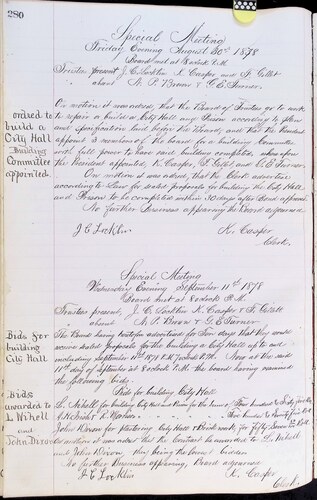 280
Special Meeting
Friday Evening August 30th 1878
Board met at 8 oclock P.M.
Trustees present J C Locklin K. Casper and F Gillet
absent N. P. Brown & G. E. Turner.
ordered to
build a
City Hall
Building
Committee
appointed.
On motion it was ordered, that the Board of Trustees go to work
to build a City Hall and Prison according to plan
and specification laid before the Board, and that the President
appoint 3 members of the board for a building Committee
with full power to have said building completed, whereupon
the President appointed, K. Casper, F. Gillet and G. E. Turner.
On motion it was ordered, that the Clerk advertise
according to Law for sealed proposals for building the City Hall
and Prison to be completed within 30 days after Bond approved.
No further Business appearing the Board adjourned
J C Locklin K. Casper
Clerk.
Special Meeting
Wednesday Evening September 11th 1878
Board met at 8 oclock P.M.
Trustees present, J. C. Locklin K. Casper & F. Gillett
absent N. P. Brown & G. E. Turner.
Bids for
building
City Hall
The Board having heretofore advertised for Ten days that they would
receive sealed proposals for the building of a City Hall up to and
including September 11th 1878 Now at the said
11th day of September at 8 oclock P.M. the board having received
the following bids.
Bids for building City Hall
Bids
awarded to
L Nihell
and
John Dixon
L. Nihell for building City Hall and Prison for the sum of Four hundred & Sixty
John Dixon for plastering City Hall & Brickwork for Fifty Seven
On motion it was ordered that the Contract be awarded to L. Nihell
and John Dixon, they being the lowest bidders
No further business appearing, Board adjourned
J C Locklin K. Casper
Clerk.